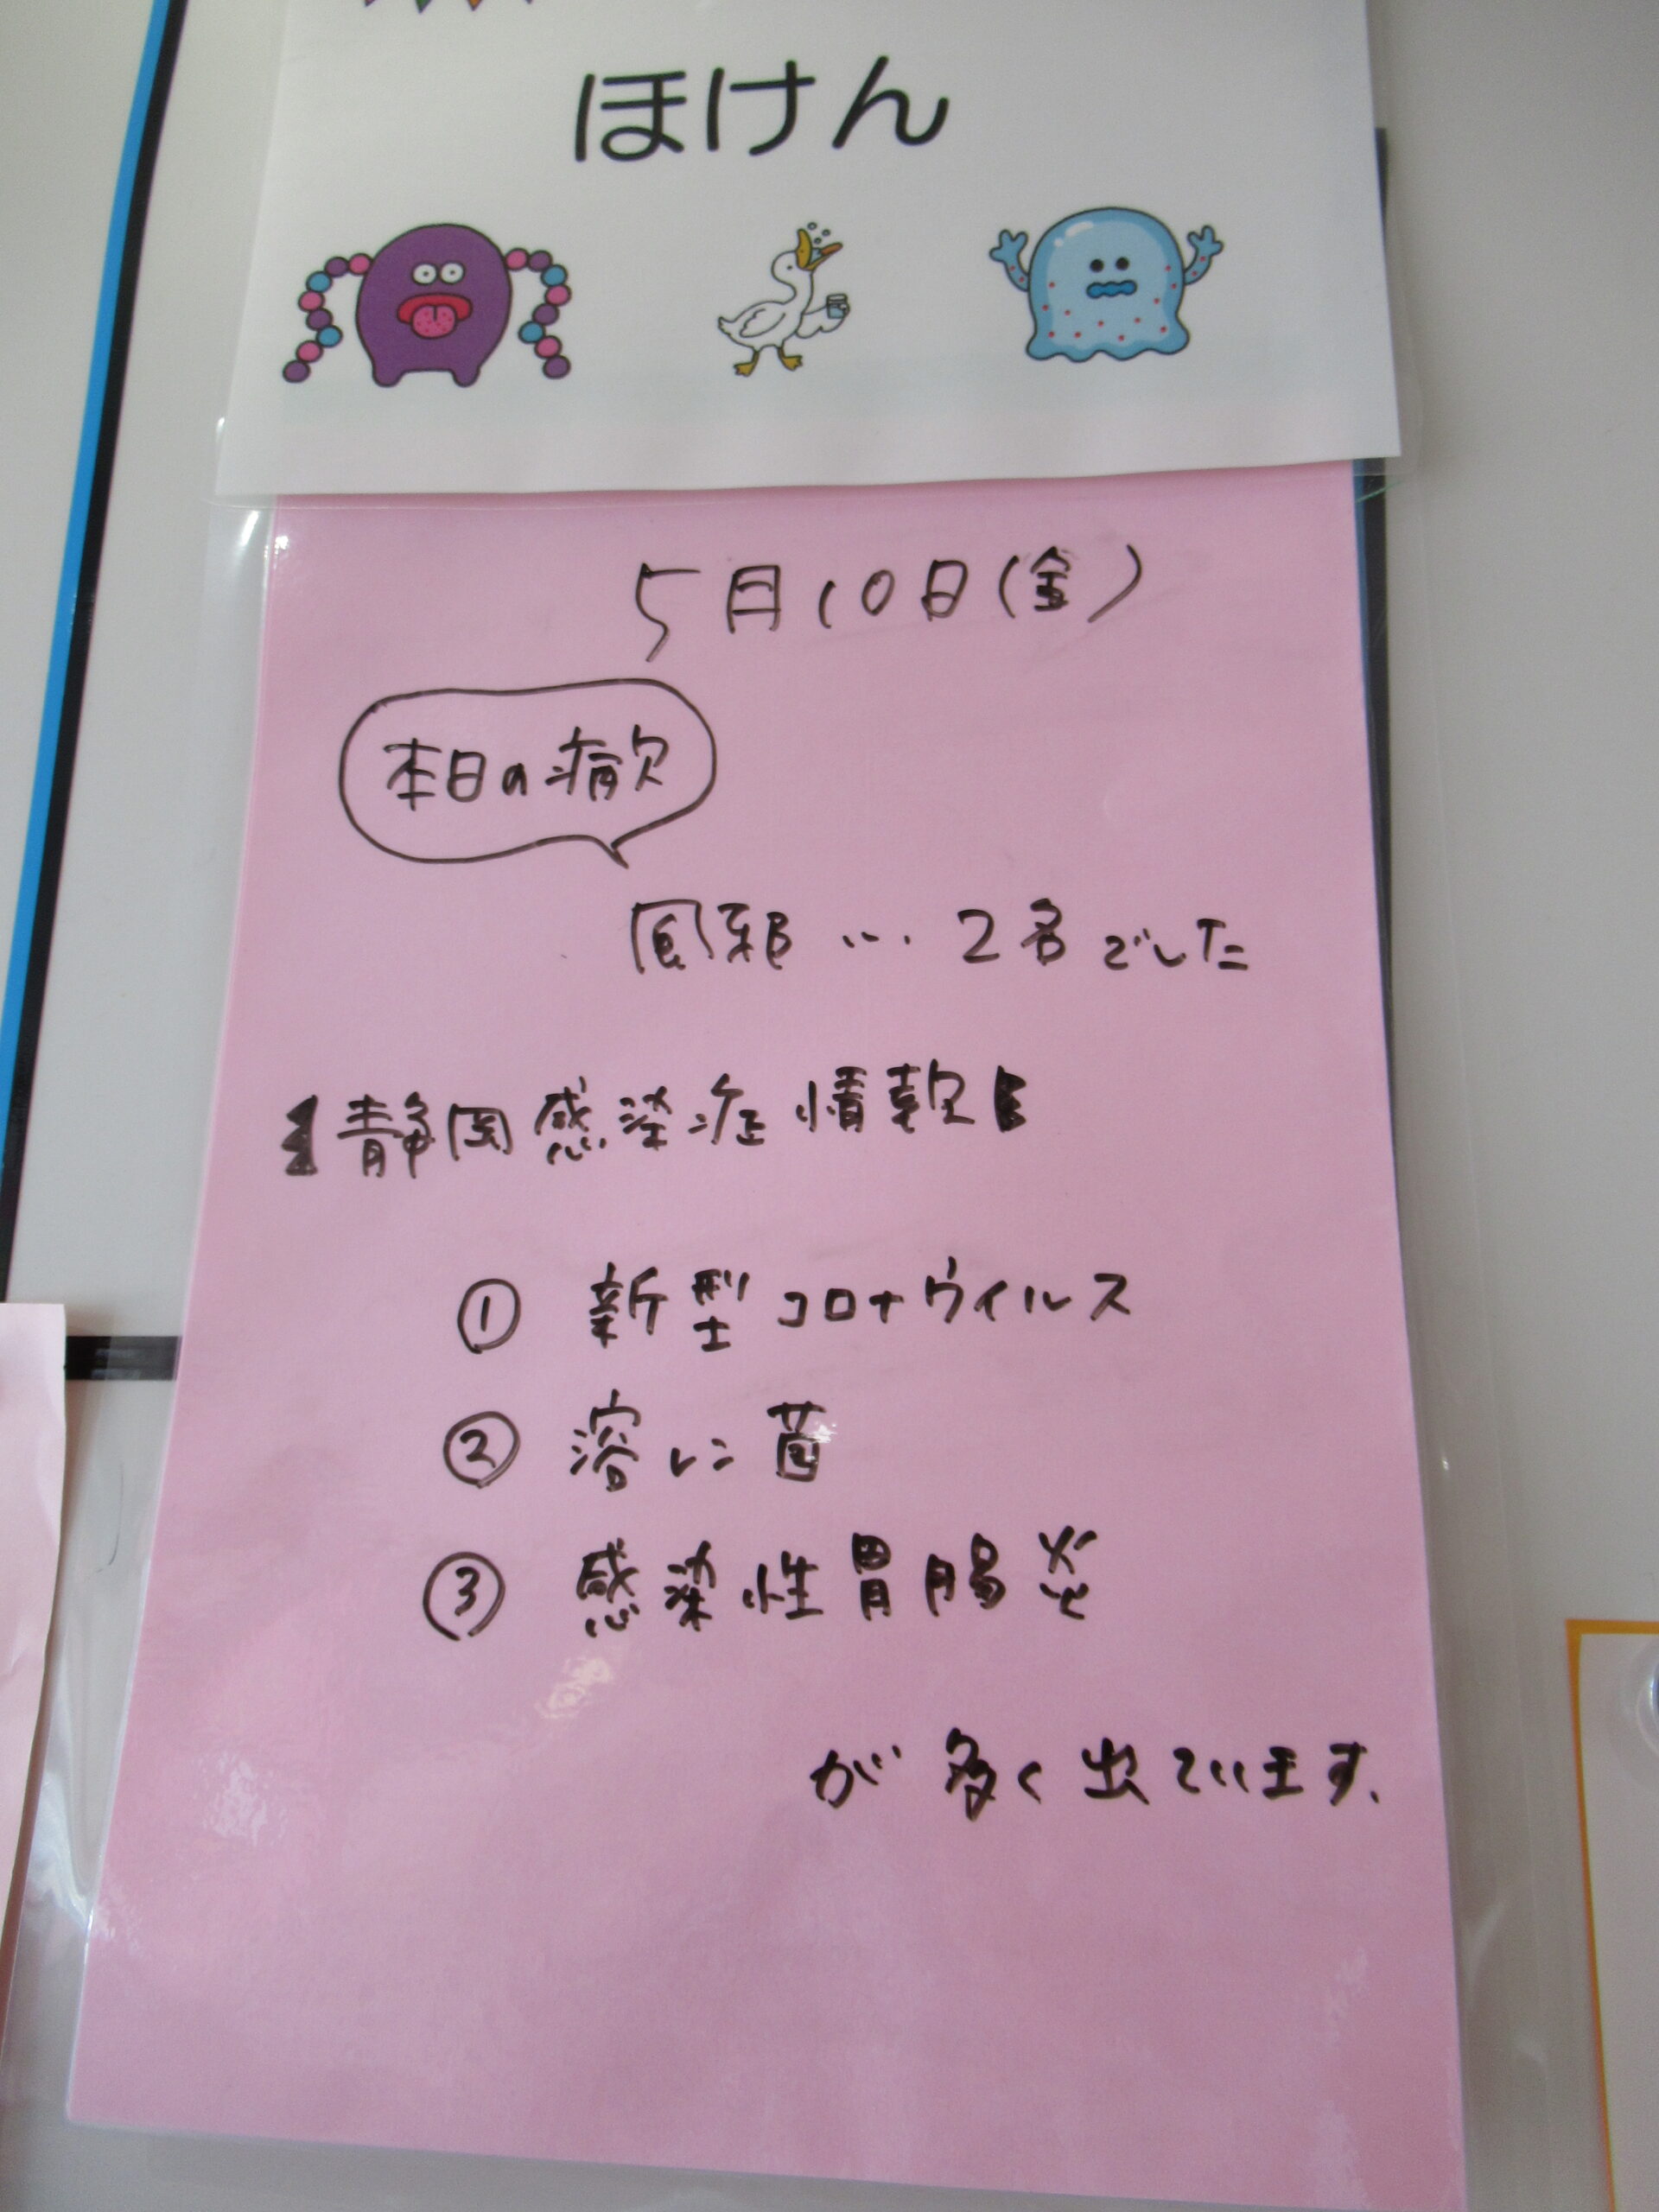 ほけん
5月10日(金)
本日の病欠
風邪…2名でした
【静岡感染症情報】
① 新型コロナウイルス
② 溶レン菌
③ 感染性胃腸炎
が多く出ています.